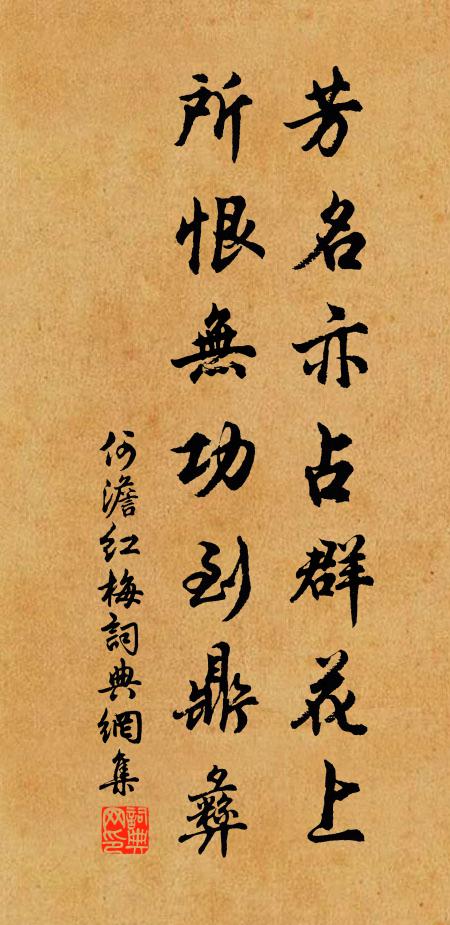 芳名亦占群花上
所恨無功到鼎彝
何澹红梅詞典網集
詞典网印